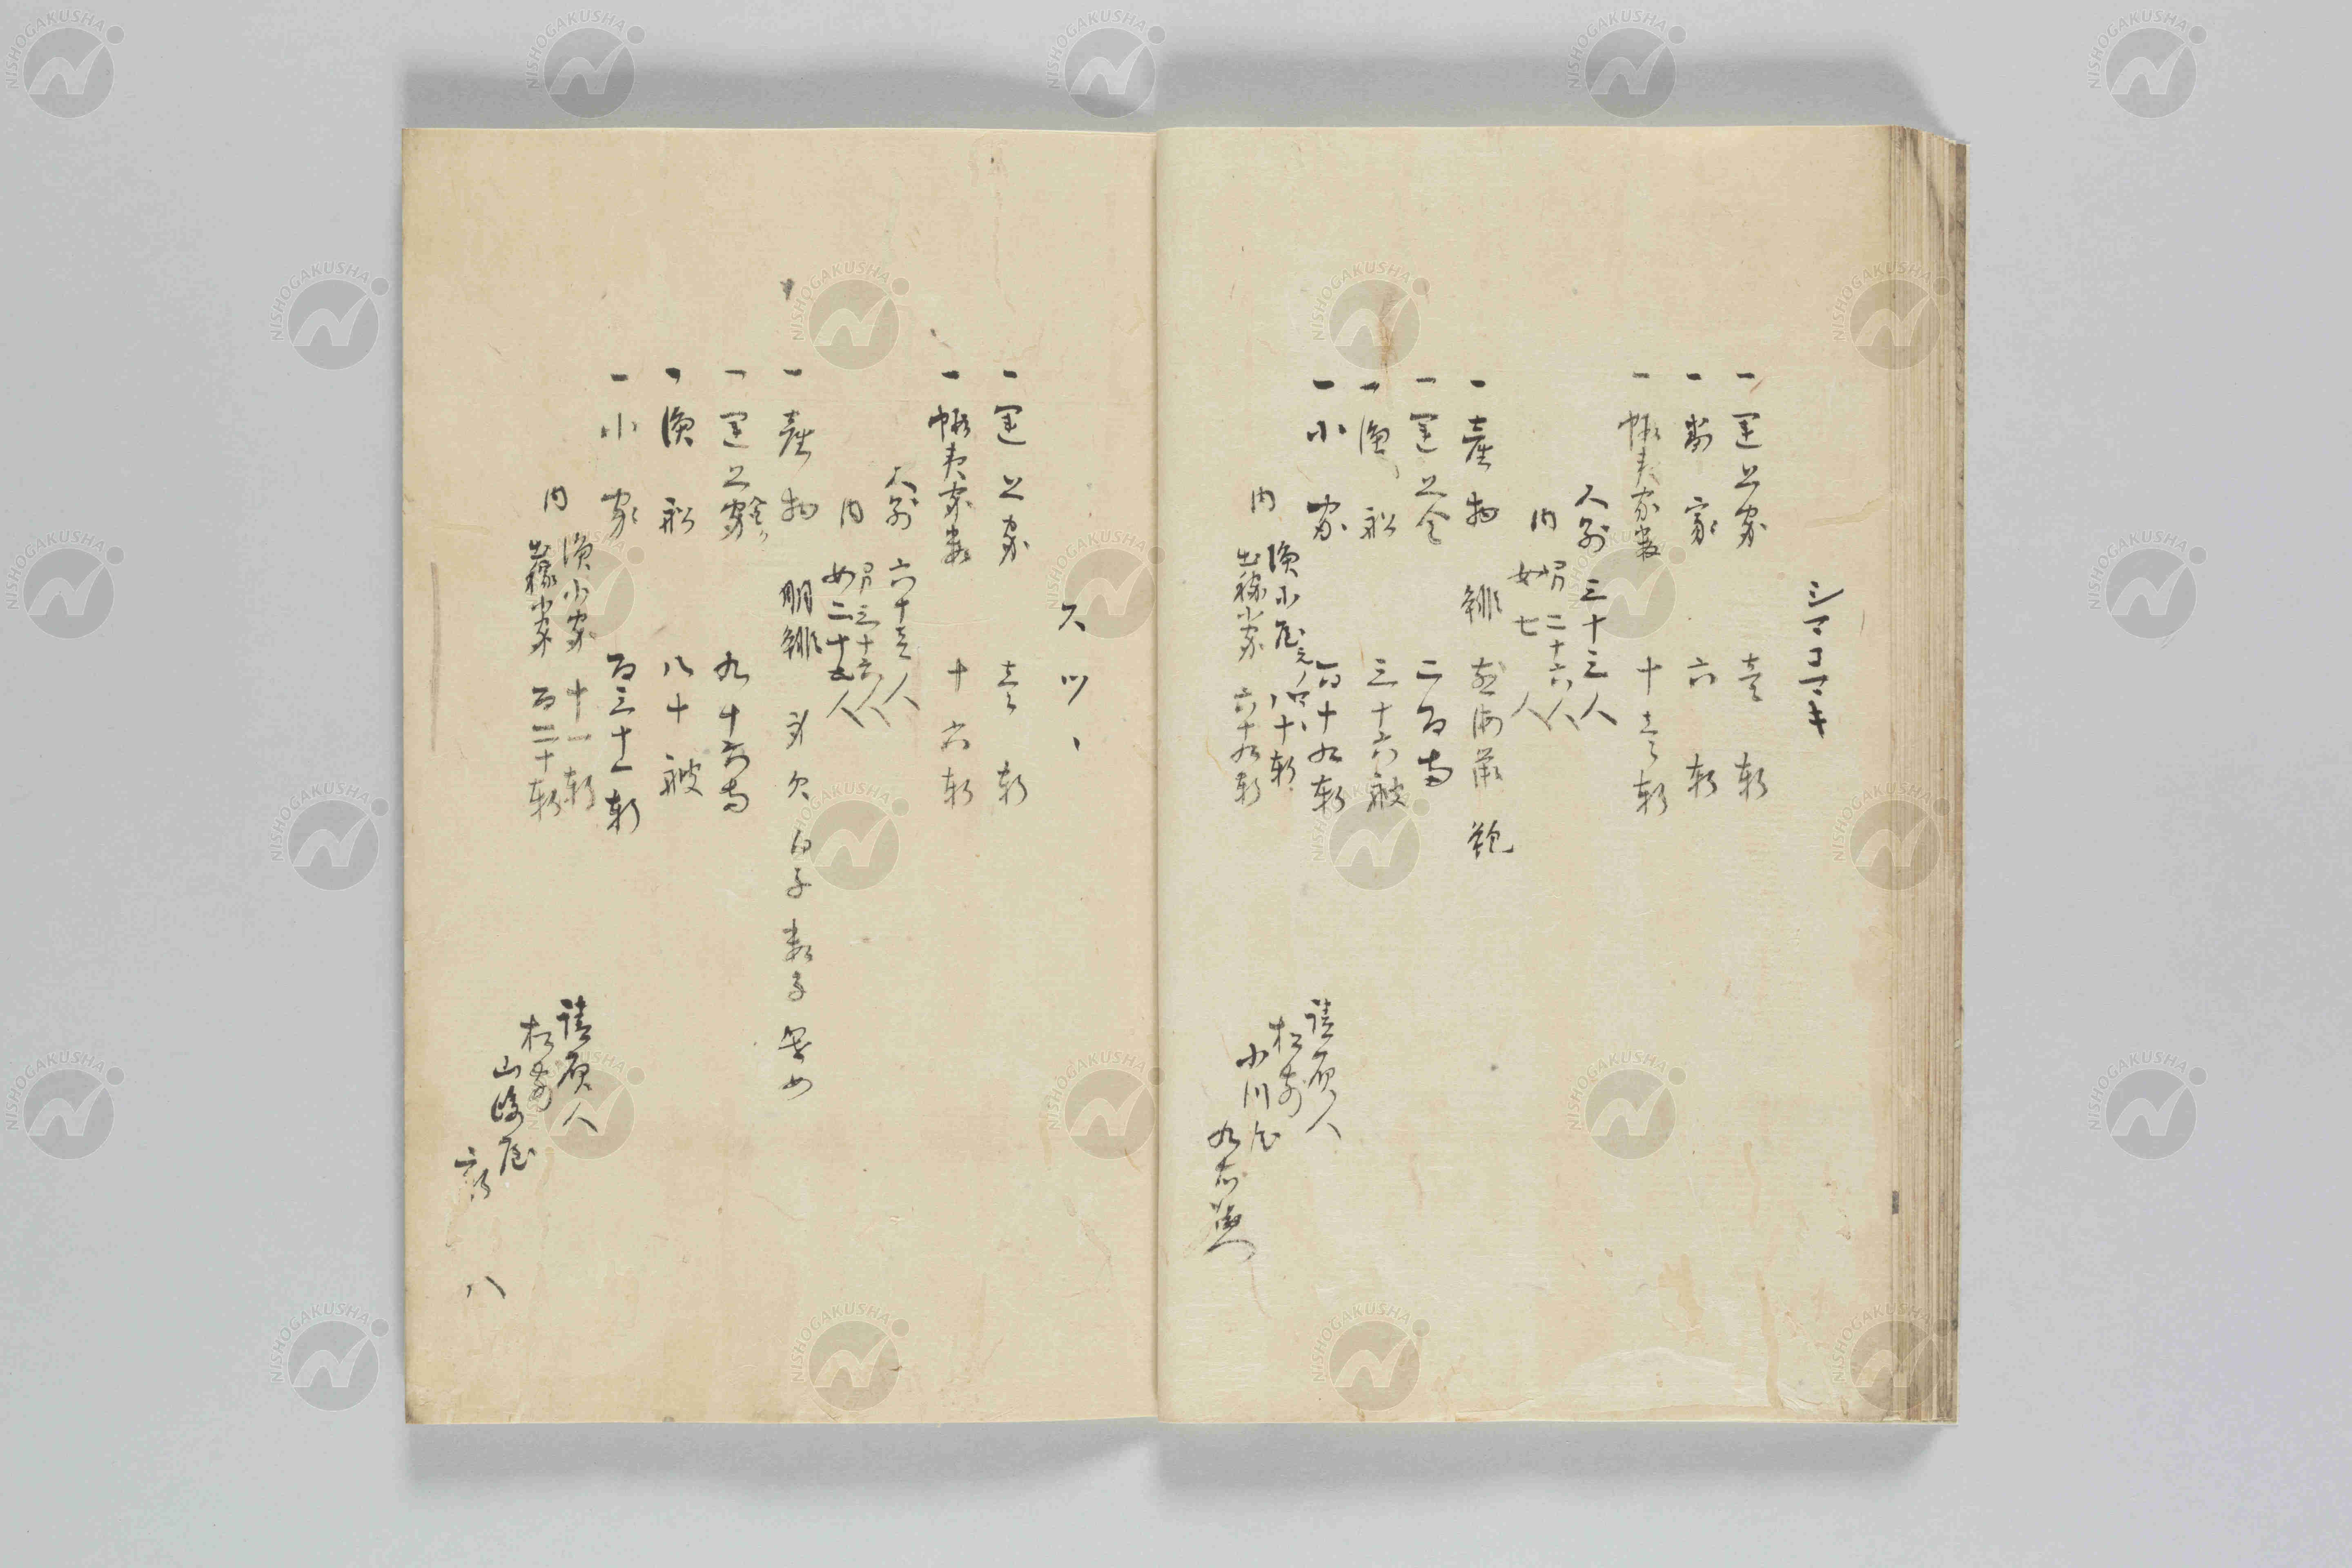 シマコマキ
一運上家 壱軒
一番家 六軒
一蝦夷家数 十壱軒
人別 三十三人
内 男二十六人
女七人
一産物 鯡 海鼠 鮑
一運上金 二百両
一漁船 三十六艘
一小家 百十九軒
内 漁小屋
出稼小家 六十九軒
請負人
松前
小川屋
九右衛門
スツヽ
一運上家 壱軒
一蝦夷家数 十六軒
人別 六十壱人
内 男三十六人
女二十五人
一産物 鯡 身欠 白子 数子
一運上金 九十六両
一漁船 八十艘
一小家 百三十一軒
内 漁小家 十一軒
出稼小家 百二十軒
請負人
松前
山崎屋
八
NISHOGAKUSHA